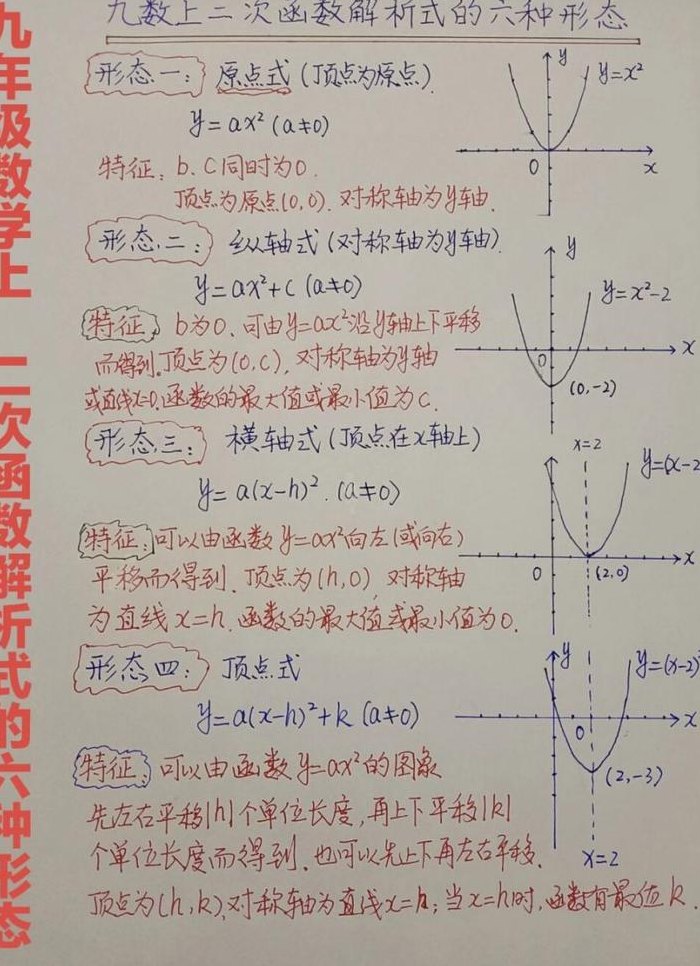 九年级数学上 二次函数解析式的六种形态
九数上二次函数解析式的六种形态
形态一: 原点式 (顶点为原点).
y=ax² (a≠0)
特征: b、c同时为0.
顶点为原点(0,0). 对称轴为y轴.
y
y=x²
0
x
形态二: 纵轴式 (对称轴为y轴).
y=ax²+c (a≠0)
特征, b为0. 可由y=ax²沿y轴上下平移
而得到. 顶点为(0,c), 对称轴为y轴
或直线x=0. 函数的最大值或最小值为c.
y
y=x²-2
0
x
(0,-2)
形态三: 横轴式 (顶点在x轴上)
y=a(x-h)². (a≠0)
特征: 可以由函数y=ax²向左(或向右)
平移而得到. 顶点为(h,0) 对称轴
为直线x=h. 函数的最大值或最小值为0.
x=2
y=(x-2
0
x
(2,0)
形态四: 顶点式
y=a(x-h)²+k (a≠0)
特征: 可以由函数y=ax²的图象
先左右平移|h|个单位长度, 再上下平移|k|
个单位长度而得到. 也可以先上下再左右平移.
顶点为(h,k), 对称轴为直线x=h; 当x=h时, 函数有最值k.
y
y=(x-2)
0
x
(2,-3)
x=2